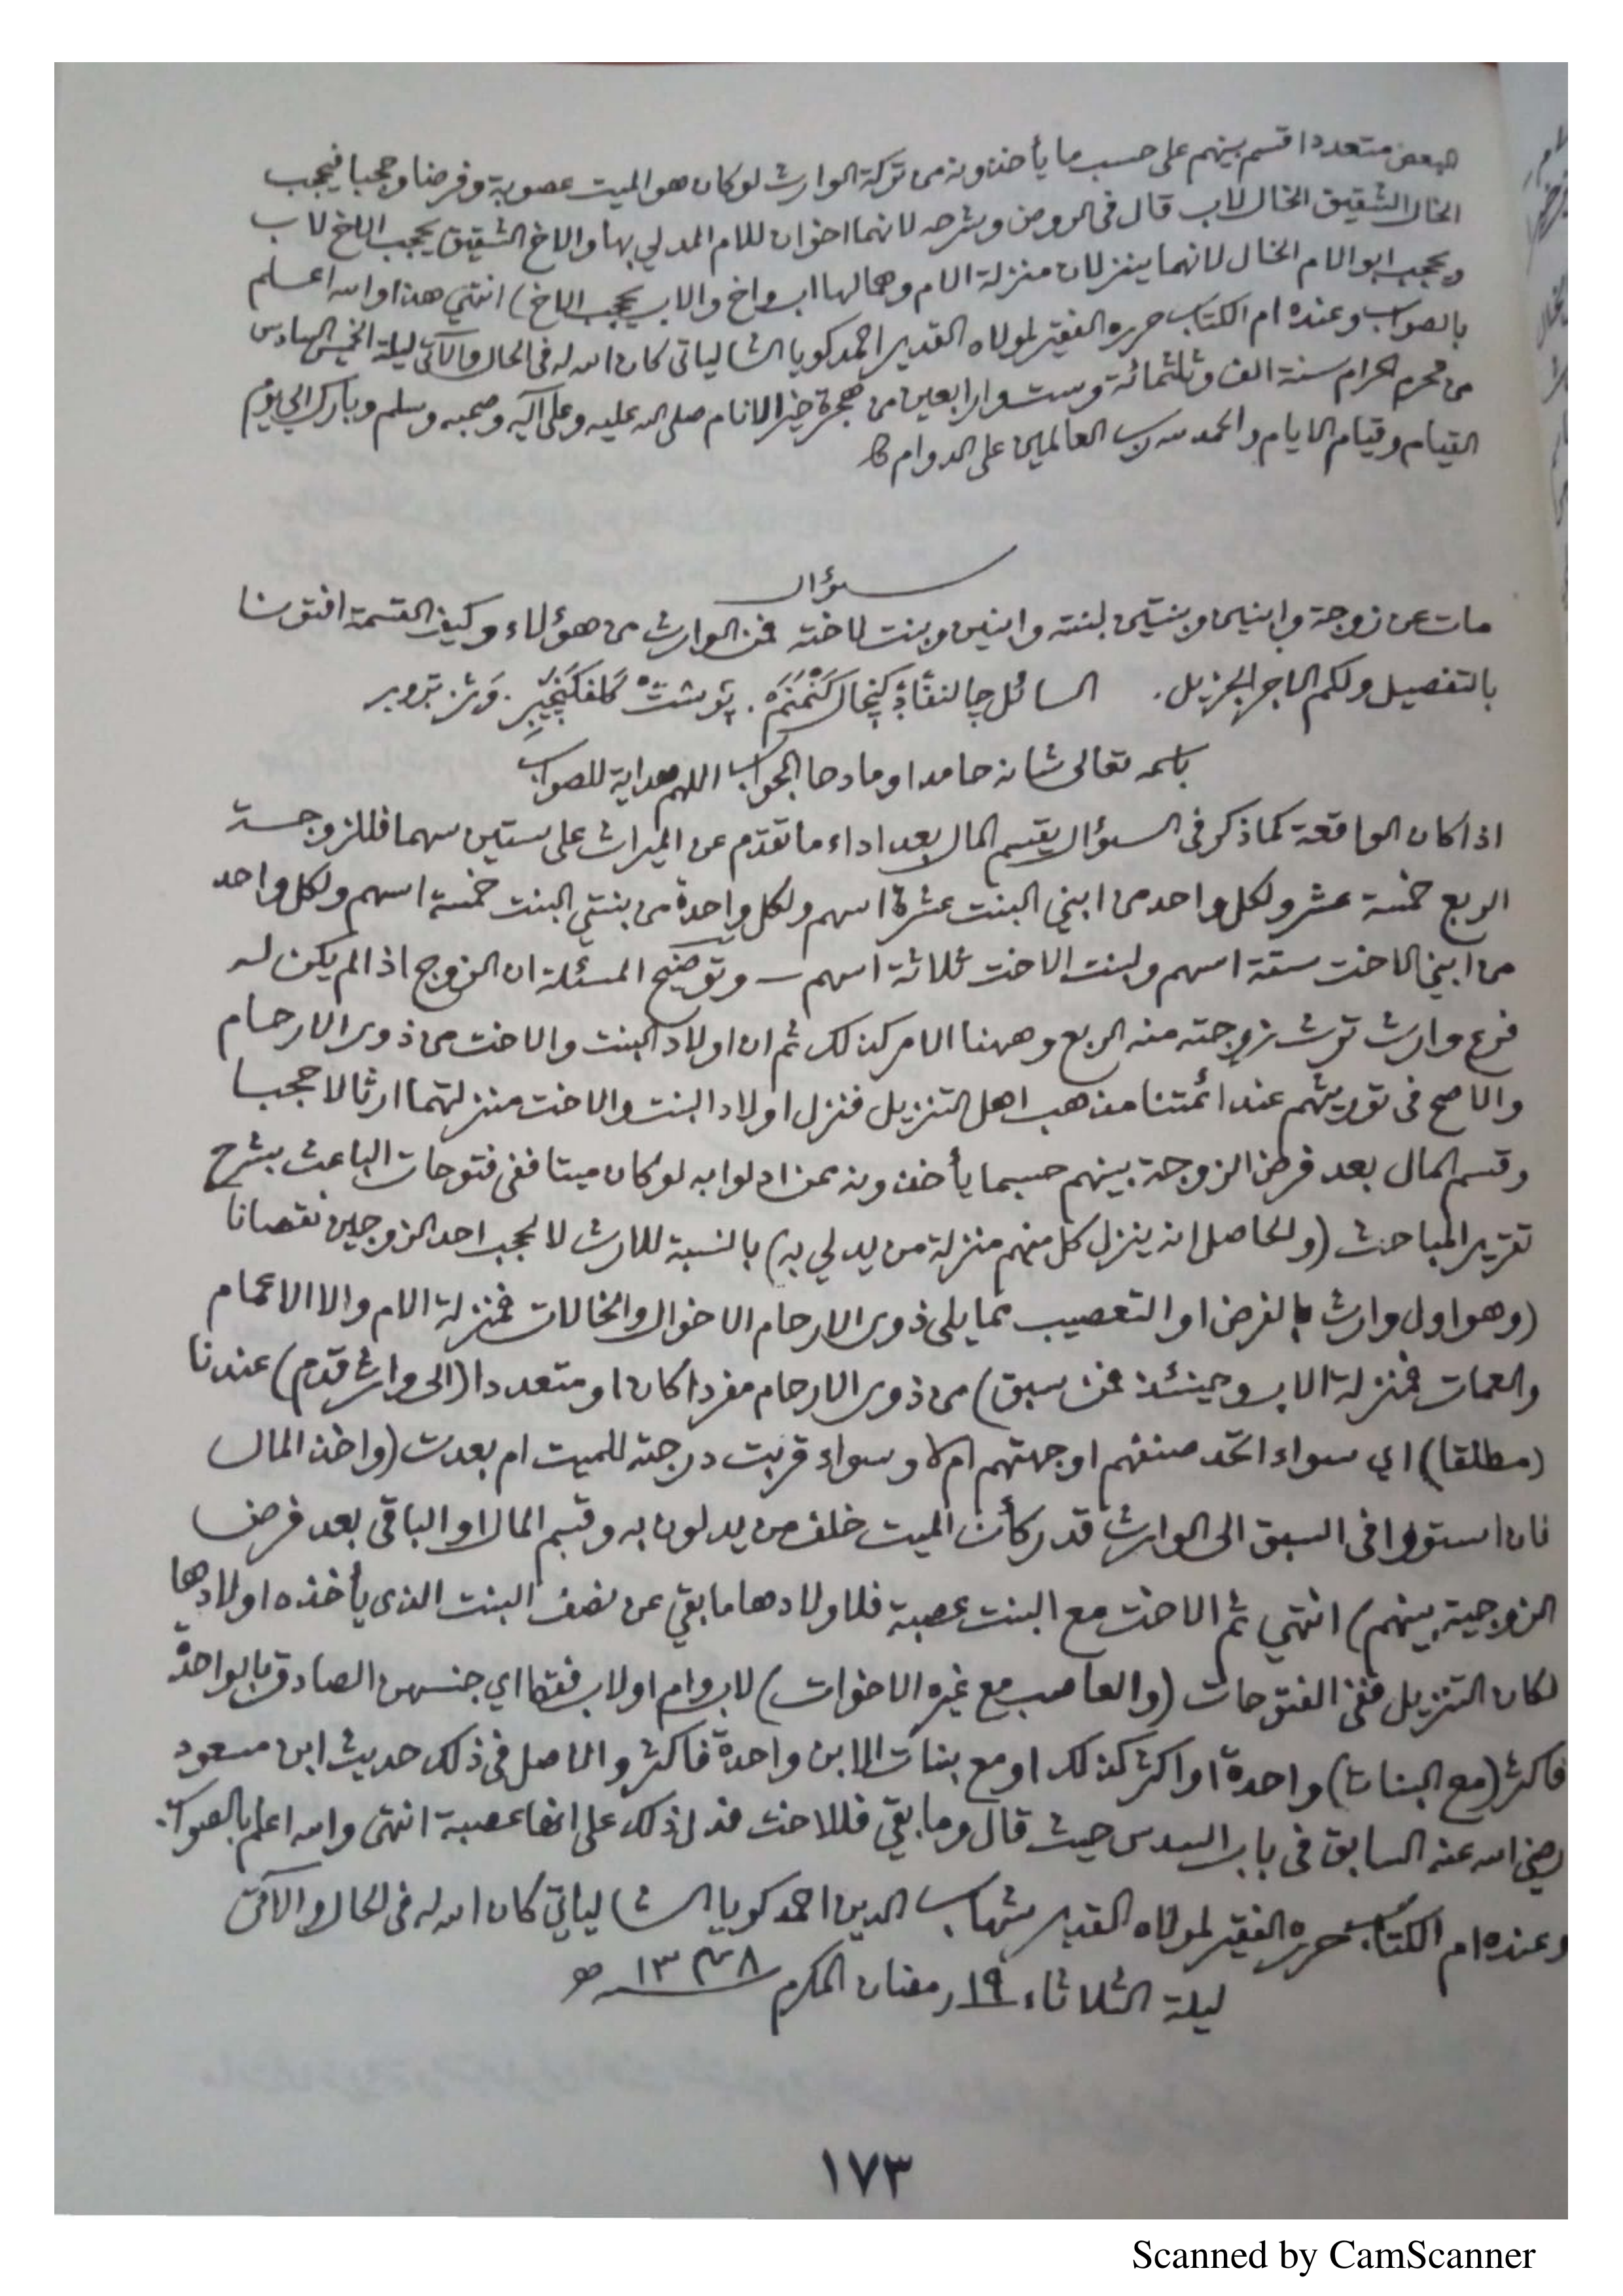 البعض متعددا قسم بينهم على حسب ما يأخذونه من تركة الوارث لو كان هو الميت عصوبة وفرضا وحجبا فيحجب
الخال الشقيق الخال لاب قال فى الروض وشرحه لانهما اخوان للام المدلي بها والاخ الشقيق يحجب الاخ لاب
ويحجب ابو الام الخال لانهما ينزلان منزلة الام وهما لها اب واخ والاب يحجب الاخ) انتهي هذا والله اعلم
بالصواب وعنده ام الكتاب حرره الفقير لمولاه القدير احمد كويا الشالياتى كان الله له فى الحال والآتى ليلة الخميس السادس
من محرم الحرام سنة الف وثلثمائة وست واربعين من هجرة خير الانام صلى الله عليه وعلى آله وصحبه وسلم وبارك الى يوم
القيام وقيام الايام والحمد لله رب العالمين على الدوام
سؤال
مات عن زوجة وابنين وبنتين لبنته وابنين وبنت لاخته فمن الوارث من هؤلاء وكيف القسمة افتونا
بالتفصيل ولكم الاجر الجزيل. السائل
باسمه تعالى شانه حامدا ومادحا الجواب اللهم هداية للصواب
اذا كان الواقعة كما ذكر فى السؤال يقسم المال بعد اداء ما تقدم عن الميراث على ستين سهما فللزوجة
الربع خمسة عشر ولكل واحد من ابني البنت عشرة اسهم ولكل واحدة من بنتي البنت خمسة اسهم ولكل واحد
من ابني الاخت ستة اسهم ولبنت الاخت ثلاثة اسهم — وتوضيح المسئلة ان الزوج اذا لم يكن له
فرع وارث ترث زوجته منه الربع وههنا الامر كذلك ثم ان اولاد البنت والاخت من ذوى الارحام
والاصح فى توريثهم عند ائمتنا مذهب اهل التنزيل فنزل اولاد البنت والاخت منزلتهما ارثا لا حجبا
وقسم المال بعد فرض الزوجة بينهم حسبما يأخذونه عمن ادلوا به لو كان ميتا ففى فتوحات الباعث بشرح
تقرير المباحث (والحاصل انه ينزل كل منهم منزلة من يدلي به) بالنسبة للارث لا لحجب احد الزوجين نقصانا
(وهو اول وارث بالفرض او التعصيب مما يلى ذوى الارحام الا الاخوال والخالات فمنزلة الام والا الاعمام
والعمات فمنزلة الاب وحينئذ فمن سبق) من ذوى الارحام مفردا كان او متعددا (الى وارث قدم) عندنا
(مطلقا) اي سواء اتحد صنفهم او جهتهم ام لا وسواء قربت درجته للميت ام بعدت (واخذ المال
فان استووا فى السبق الى الوارث قدر كأن الميت خلف من يدلون به وقسم المال او الباقى بعد فرض
الزوجية بينهم) انتهي ثم الاخت مع البنت عصبة فلاولادها ما بقي عن نصف البنت الذى يأخذه اولادها
لكان التنزيل ففى الفتوحات (والعاصب مع غيره الاخوات) لاب وام او لاب فقط اي جنسهن الصادق بالواحدة
فاكثر (مع البنات) واحدة او اكثر كذلك او مع بنات الابن واحدة فاكثر والاصل فى ذلك حديث ابن مسعود
رضي الله عنه السابق فى باب السدس حيث قال وما بقي فللاخت فدل ذلك على انها عصبة انتهى والله اعلم بالصواب
وعنده ام الكتاب حرره الفقير لمولاه القدير شهاب الدين احمد كويا الشالياتي كان الله له فى الحال والآتى
ليلة الثلاثاء ١٩ رمضان المكرم ١٣٤٨ هـ
١٧٣
Scanned by CamScanner